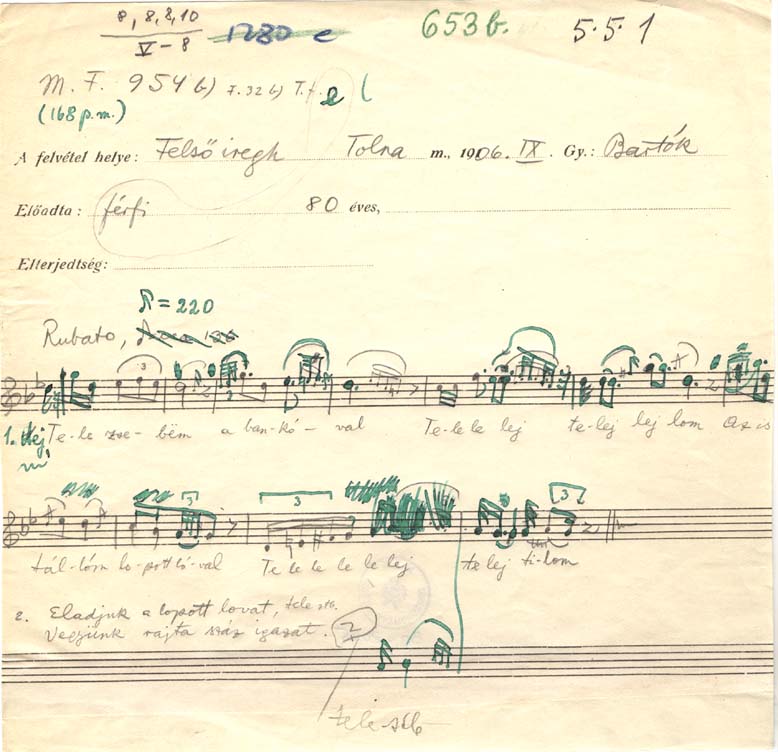 8, 8, 8, 10 1280 e 653 b. 5·5 1
V-8
M. F. 954 b) F. 32 b) T. f. e l
(168 p.m.)
A felvétel helye: Felsőiregh Tolna m., 1906. IX. Gy.: Bartók
Előadta: férfi 80 éves,
Elterjedtség:
♪ = 220
Rubato,
1. Hej Te-le zse-bëm a ban-kó-val Te-le le lej te-lej lej lom Az is
tál-lóm lo-pott ló-val Te le le le le lej te lej ti-lom
2. Eladjuk a lopott lovat, tele stb.
Vegyünk rajta száz igazat. 2
tele stb